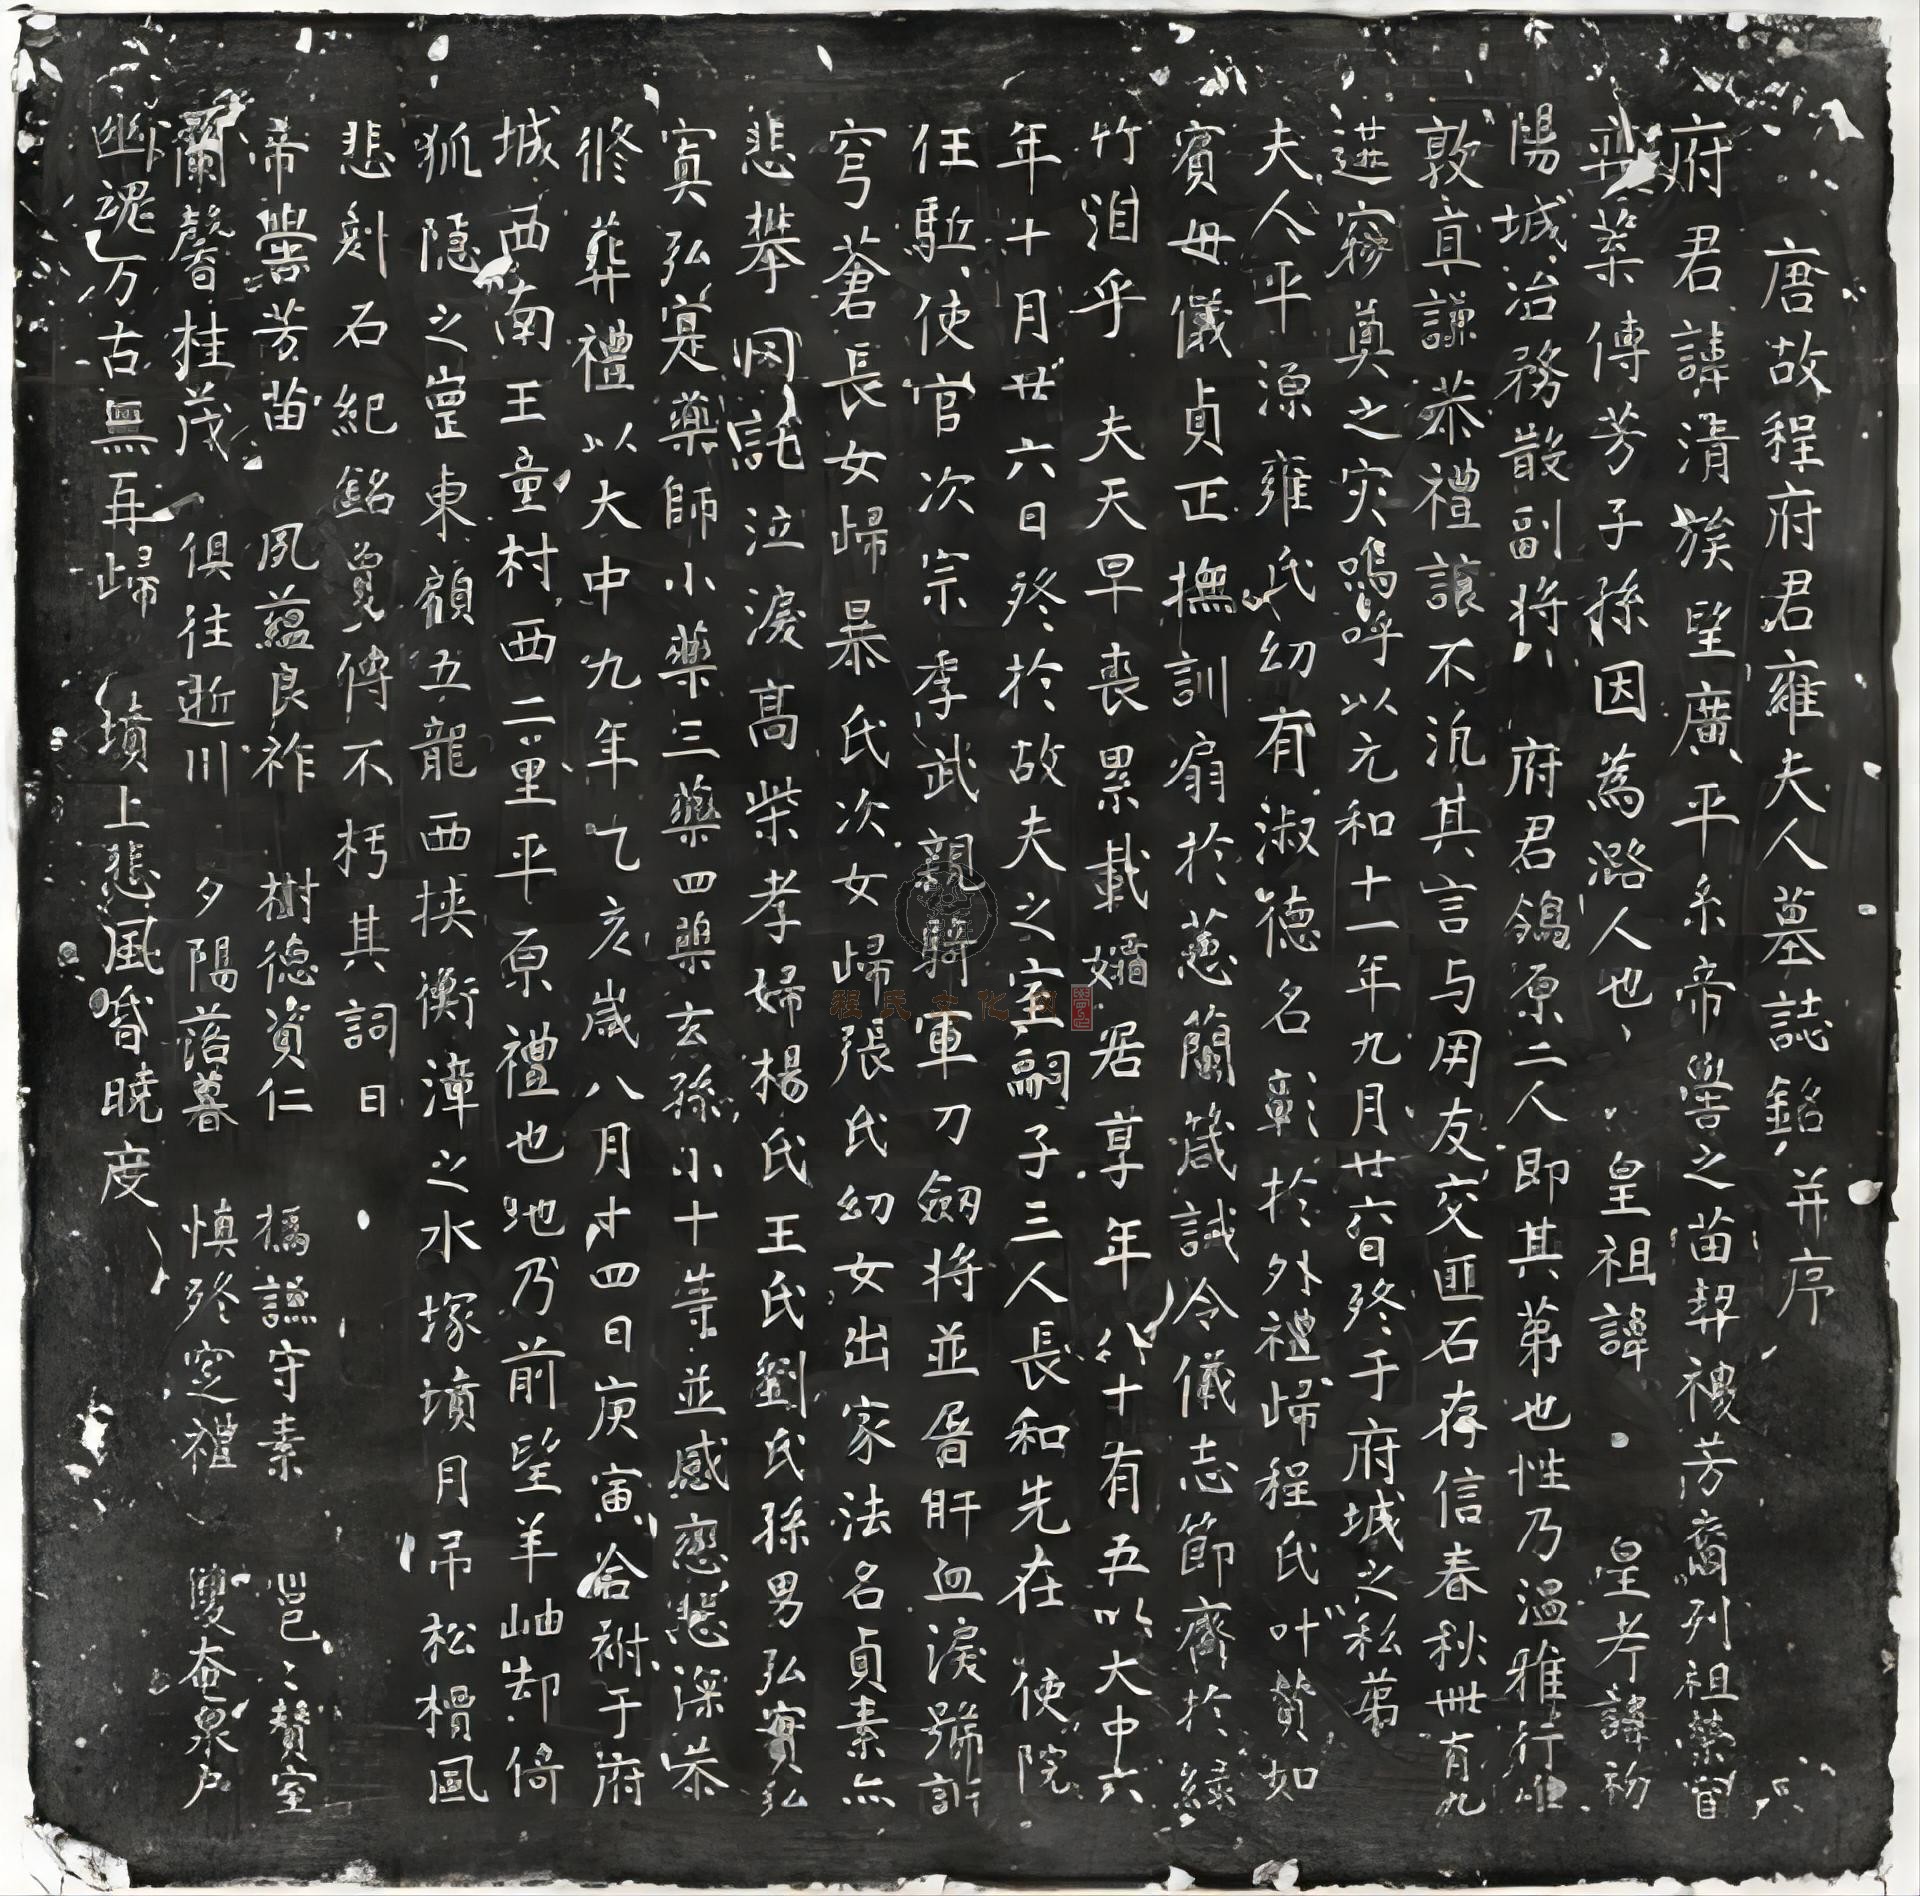 唐故程府君雍夫人墓誌銘并序
府君諱清族望廣平系帝嚳之苗契禝芳裔列祖榮官
弈葉傳芳子孫因為潞人也皇祖諱 皇考諱初
陽城冶務散副將府君鴒原二人即其弟也性乃溫雅行唯
敦直謙恭禮讓不汎其言与用友交匪石存信春秋卅有九
遘窮奠之灾嗚呼以元和十一年九月廿六日終于府城之私弟
夫人平源雍氏幼有淑德名彰於外禮歸程氏叶賛如
賓母儀貞正撫訓扇於蕙蘭箴誡冷儀志節齊於綠
竹洎乎夫天早喪累載孀居享年八十有五以大中六
年十月廿六日終於故夫之室嗣子三人長和先在使院
任駈使官次宗季武親騎軍刀劒將並屠肝血淚號訴
穹蒼長女歸暴氏次女歸張氏幼女出家法名貞素亦
悲攀罔託泣淚高柴孝婦楊氏王氏劉氏孫男弘實弘
寘弘寔藥師小藥三藥四藥玄孫小十等並感戀悲深恭
修葬禮以大中九年乙亥歲八月十四日庚寅合祔于府
城西南王童村西二里平原禮也地乃前望羊岫却倚
狐隱之崗東顧五龍西挾衡漳之水塚墳月吊松檟風
悲剋石紀銘冀傳不朽其詞曰
帝嚳芳苗 夙蘊良祚 樹德資仁 撝謙守素 邕邕賛室
蘭馨桂茂 俱往逝川 夕陽落暮 慎終定禮 雙奄泉户
幽魂万古無再歸 墳上悲風昏曉度
程氏文化网